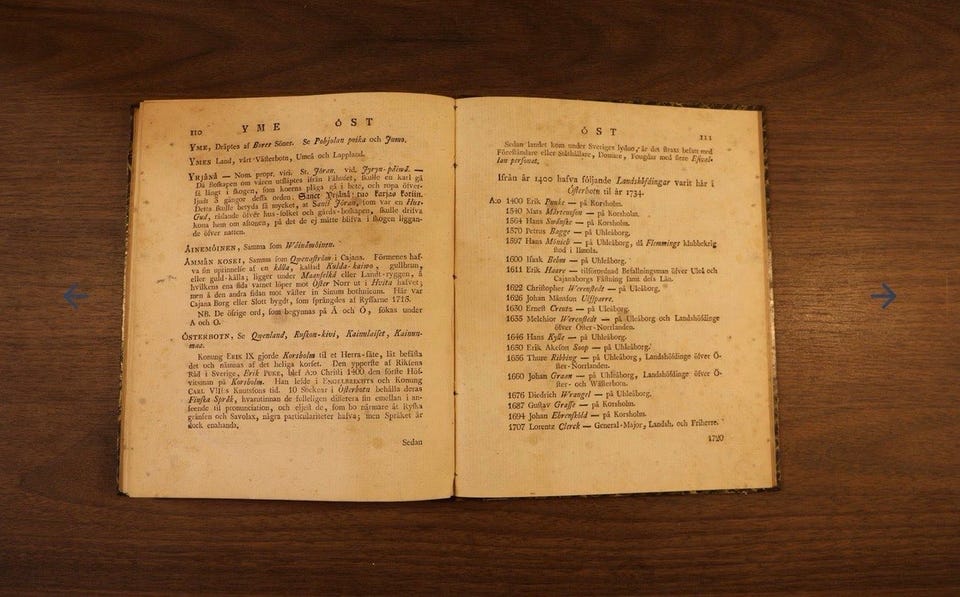 110 YME ÖST
YME, Dräptes af Bores Söner. Se Pohjolan poika och Jumo.
YMES Land, vårt Västerbotn, Umeå och Lappland.
YRJÄNÄ — Nom. propr. viri. St. Jöran. vid. Jyryn-päiwä. —
Då Boskapen om våren utsläptes ifrån Fähuset, skulle en karl gå
så långt i skogen, som koerna pläga gå i bete, och ropa öfver-
ljudt 3 gångor dessa orden: Sanct Yrjänä: tuo karjas kotiin.
Detta skulle betyda så mycket, at Sanct Jöran, som var en Hus-
Gud, rådande öfver hus-folket och gårds-boskapen, skulle drifva
kona hem om aftonen, på det de ej måtte blifva i skogen liggan-
de öfver natten.
ÄINEMÖINEN, Samma som Wäinämöinen.
ÄMMÄN KOSKI, Samma som Qvenaström i Cajana. Förmenes haf-
va sin uprinnelse af en källa, kallad Kulda-kaiwo, gullbrun,
eller guld-källa; ligger under Maanselkä eller Landt-ryggen, å
hvilkens ena sida vatnet löper mot Öster Norr ut i Hvita hafvet;
men å den andra sidan mot väster in Sinum bothnicum. Här var
Cajana Borg eller Slott bygdt, som sprängdes af Ryssarne 1716.
NB. De öfrige ord, som begynnas på Ä och Ö, sökas under
A och O.
ÖSTERBOTN, Se Qvenland, Ruskon-kivi, Kainulaiset, Kainun-
maa.
Konung ERIK IX gjorde Korsholm til et Herra-säte, lät befästa
det och nämnas af det heliga korset. Den ypperste af Riksens
Råd i Sverige, Erik PUKE, blef A:o Christi 1400 den förste Höf-
vitsman på Korsholm. Han lefde i ENGELBRECHTS och Konung
CARL VIII:s Knutssons tid. 10 Socknar i Österbotn behålla deras
Finska Språk, hvarutinnan de solleligen differera sin emellan i an-
seende til pronunciation, och eljest de, som bo närmare åt Ryska
gränsen och Savolax, några particulariteter hafva; men Språket är
dock enahanda.
Sedan
ÖST 111
Sedan landet kom under Sveriges lydno, är det straxt besatt med
Föreståndare eller Ståthållare, Domare, Fougdar med flere Efwal-
lan personat.
Ifrån år 1400 hafva följande Landshöfdingar varit här i
Österbotn til år 1734.
A:o 1400 Erik Puuke — på Korsholm.
1540 Mats Mårtensson — på Korsholm.
1564 Hans Swänske — på Korsholm.
1570 Petrus Bagge — på Uhleåborg.
1597 Hans Mönick — på Uhleåborg, då Flemmings klubbekrig
stod i Ilmola.
1600 Isaak Behm — på Uhleåborg.
1611 Erik Haare — tilförordnad Befallningsman öfver Uleå och
Cajanaborgs Fästning samt dess Län.
1622 Christopher Werenstedt — på Uleåborg.
1626 Johan Månsson Ulfsparre.
1630 Ernest Creutz — på Uleåborg.
1635 Melchior Werenstedt — på Uleåborg och Landshöfdinge
öfver Öster-Norrlanden.
1646 Hans Kylle — på Uhleåborg.
1650 Erik Akeson Soop — på Uhleåborg.
1656 Thure Ribbing — på Uhleåborg, Landshöfdinge öfver Ö-
ster-Norrlanden.
1660 Johan Graan — på Uhleåborg, Landshöfdinge öfver Ö-
ster- och Wästerbotn.
1676 Diedrich Wrangel — på Uhleåborg.
1687 Gustav Grasse — på Korsholm.
1694 Johan Ehrenskiöld — på Korsholm.
1707 Lorentz Clerck — General-Major, Landsh. och Friherre.
1720